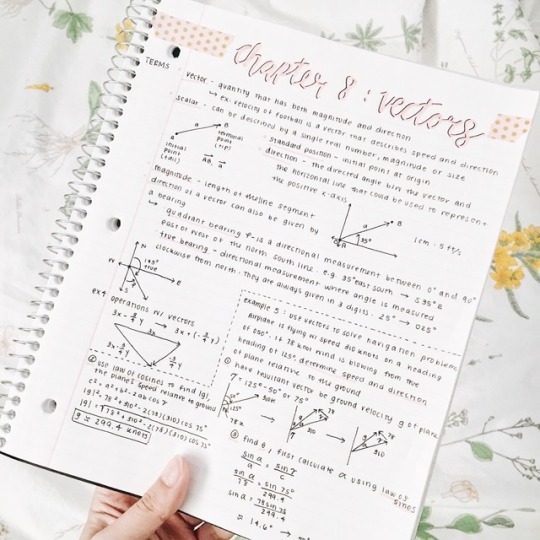 chapter 8: vectors
TERMS
vector - quantity that has both magnitude and direction
↳ ex: velocity of football is a vector that describes speed and direction
scalar - can be described by a single real number, magnitude or size
A
B
a
initial point (tail)
terminal point (tip)
AB, a
standard position - initial point at origin
direction - the directed angle b/w the vector and
the horizontal line that could be used to represent
the positive x-axis
magnitude - length of the line segment
direction of a vector can also be given by
a bearing
a
B
35°
1cm : 5 ft/s
↳ quadrant bearing φ - is a directional measurement between 0° and 90°
east or west of the north south line. e.g. 35° east south → S 35° E
true bearing - directional measurement where angle is measured
clockwise from north. They are always given in 3 digits. 25° → 025°
N
W
E
145° true
ex4
operations w/ vectors
3x - 3/4 y → 3x + (- 3/4 y)
3x
3x - 3/4 y
- 3/4 y
example 5: use vectors to solve navigation problems
airplane is flying w/ speed 310 knots on a heading
of 050°. If 78 knot wind is blowing from true
heading of 125°, determine speed and direction
of plane relative to the ground
① have resultant vector be ground velocity g of plane
γ = 125° - 50° or 75°
78
310
② use law of cosines to find |g|,
the plane's speed relative to ground
c² = a² + b² - 2ab cos γ
|g|² = 78² + 310² - 2(78)(310) cos 75°
|g| = √78² + 310² - 2(78)(310) cos 75°
g ≈ 299.4 knots
③ find θ, first calculate α using law of sines
sin α / a = sin γ / c
sin α / 78 = sin 75° / 299.4
sin α = 78 sin 75° / 299.4
≈ 14.6° →